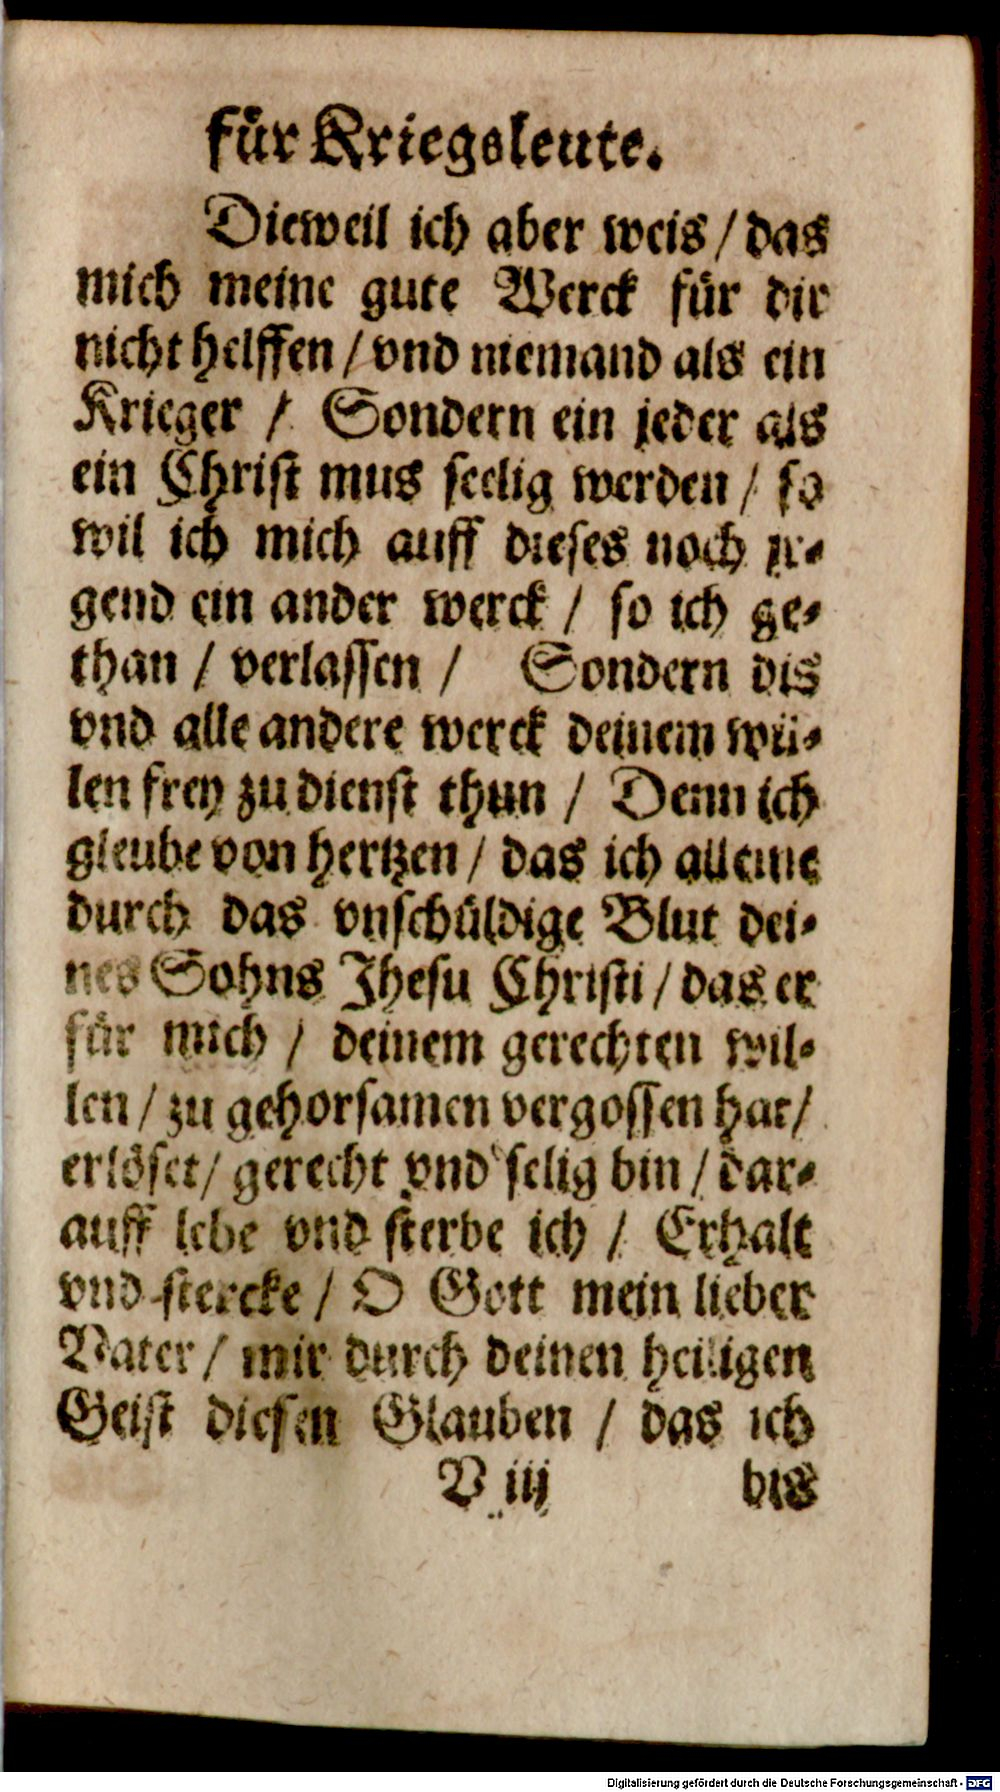 für Kriegsleute.
Dieweil ich aber weis / das
mich meine gute Werck für dir
nicht helffen / vnd niemand als ein
Krieger / Sondern ein jeder als
ein Christ mus seelig werden / so
wil ich mich auff dieses noch jr-
gend ein ander werck / so ich ge-
than / verlassen / Sondern dis
vnd alle andere werck deinem wil-
len frey zu dienst thun / Denn ich
gleube von hertzen / das ich alleine
durch das vnschüldige Blut dei-
nes Sohns Jhesu Christi / das er
für mich / deinem gerechten wil-
len / zu gehorsamen vergossen hat /
erlöset / gerecht vnd selig bin / dar-
auff lebe vnd sterbe ich / Erhalt
vnd stercke / O Gott mein lieber
Vater / mir durch deinen heiligen
Geist diesen Glauben / das ich
V iij bis
Digitalisierung gefördert durch die Deutsche Forschungsgemeinschaft - DFG